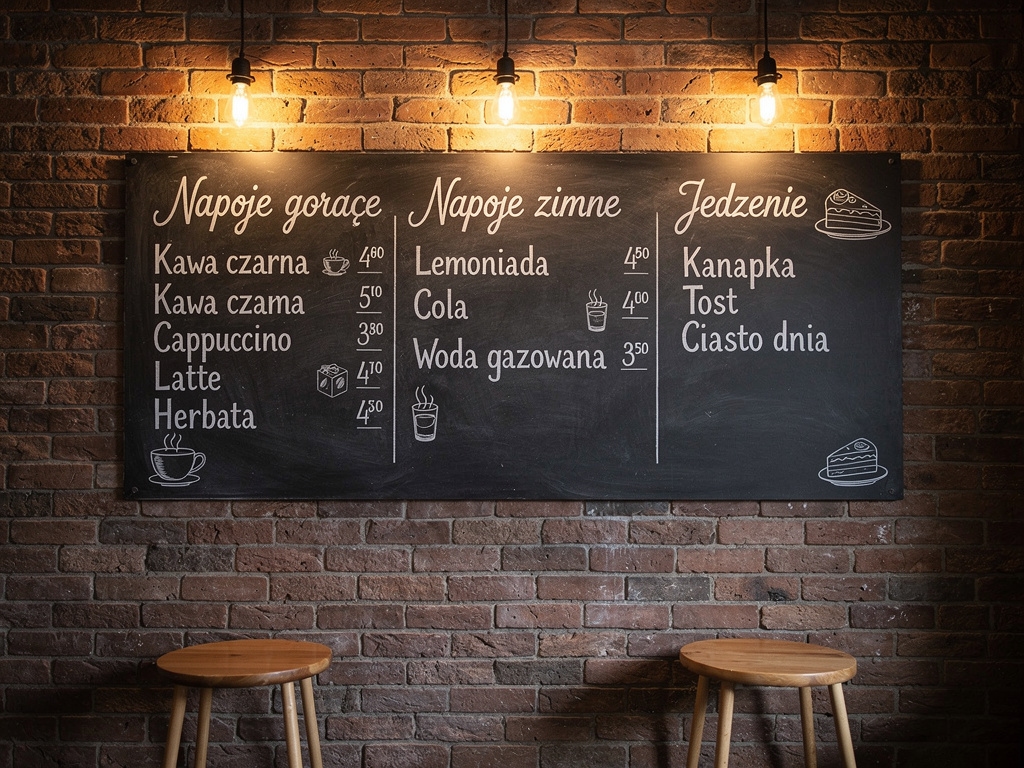 Napoje gorąçe
Kawa czarna 4⁶⁰
Kawa czama 5¹⁰
Cappuccino 3⁸⁰
Latte 4⁷⁰
Herbata 4⁵⁰
Napoje zimne
Lemoniada 4⁵⁰
Cola 4⁰⁰
Woda gazowana 3⁵⁰
Jedzenie
Kanapka
Tost
Ciasto dnia